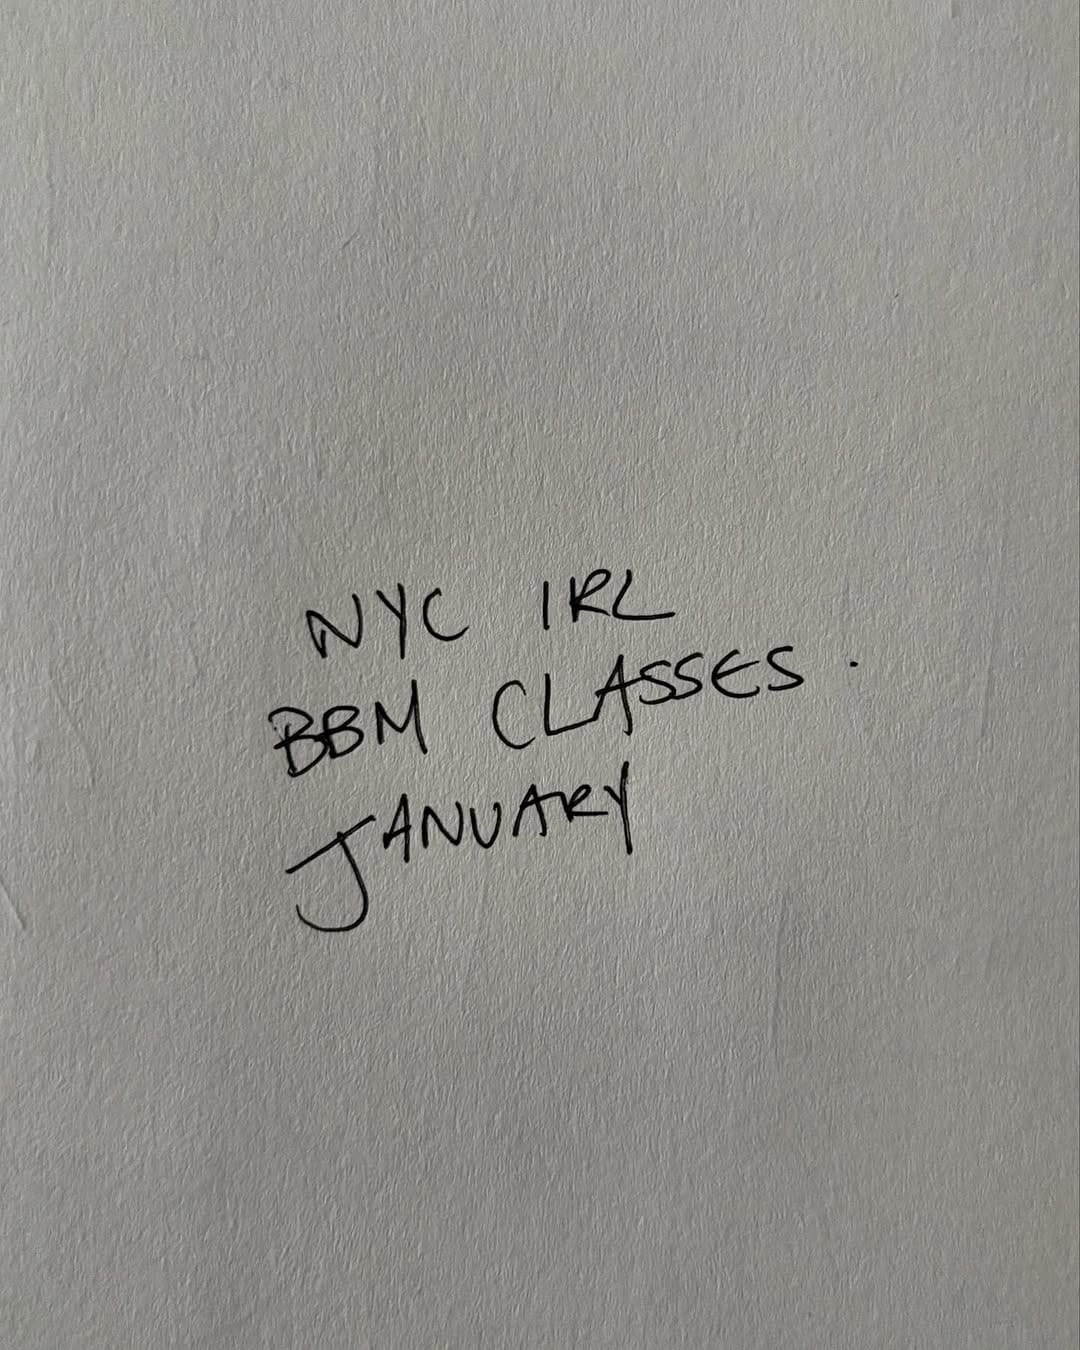 NYC IRL
BBM CLASSES.
JANUARY